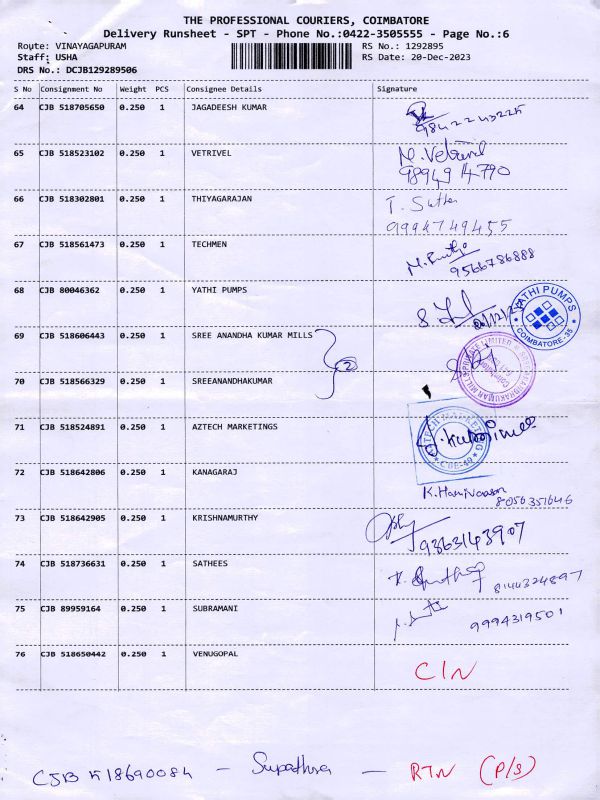 THE PROFESSIONAL COURIERS, COIMBATORE
Delivery Runsheet - SPT - Phone No.:0422-3505555 - Page No.:6
Route: VINAYAGAPURAM RS No.: 1292895
Staff: USHA RS Date: 20-Dec-2023
DRS No.: DCJB129289506
S No Consignment No Weight PCS Consignee Details Signature
64 CJB 518705650 0.250 1 JAGADEESH KUMAR
65 CJB 518523102 0.250 1 VETRIVEL M. Vetrivel
9894914790
66 CJB 518302801 0.250 1 THIYAGARAJAN T. Sutha
9994749455
67 CJB 518561473 0.250 1 TECHMEN
9566786888
68 CJB 80046362 0.250 1 YATHI PUMPS YATHI PUMPS COIMBATORE-35
69 CJB 518606443 0.250 1 SREE ANANDHA KUMAR MILLS
2
70 CJB 518566329 0.250 1 SREEANANDHAKUMAR
71 CJB 518524891 0.250 1 AZTECH MARKETINGS AZTECH MARKETING CBE-49
72 CJB 518642806 0.250 1 KANAGARAJ
8056351646
73 CJB 518642905 0.250 1 KRISHNAMURTHY 9363143907
74 CJB 518736631 0.250 1 SATHEES 8144324897
75 CJB 89959164 0.250 1 SUBRAMANI 9994319501
76 CJB 518650442 0.250 1 VENUGOPAL C/N
CJB 518690084 - Supathra - RTN (P/S)